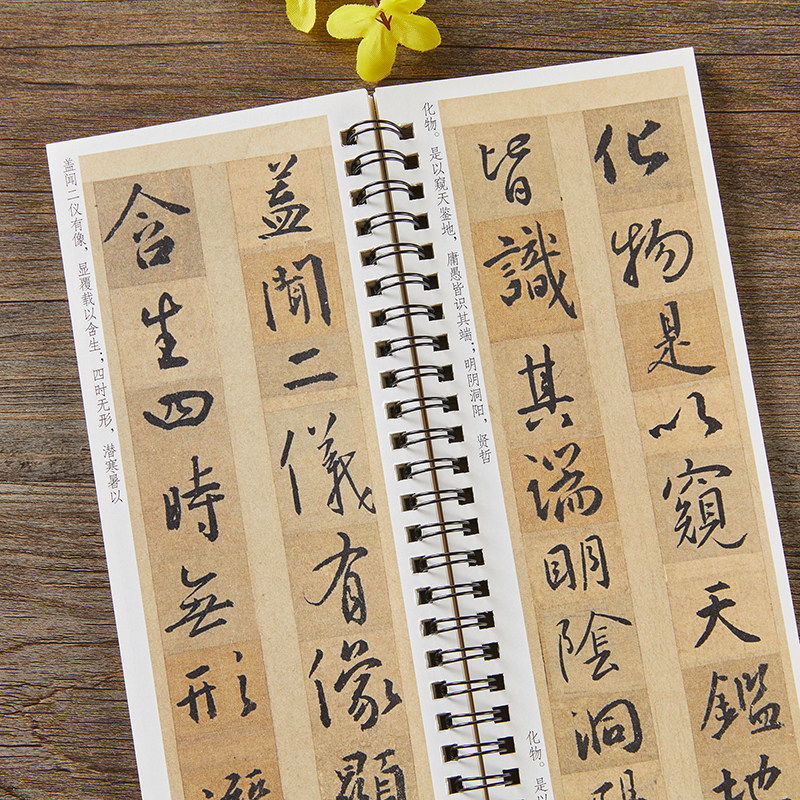 盖闻二仪有像，显覆载以含生；四时无形，潜寒暑以
蓋聞二儀有像顯
含生四時無形
化物。是以窥天鉴地，庸愚皆识其端；明阴洞阳，贤哲
化物是以窺天鑑地
皆識其端明陰洞
化物。是以